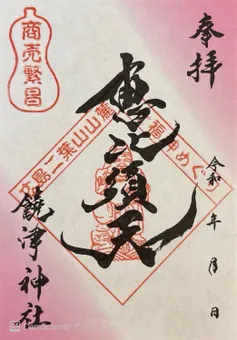 奉拝
商売繁昌
二葉山山麓
福神めぐ
恵比須天
令和 年 月 日
饒津神社